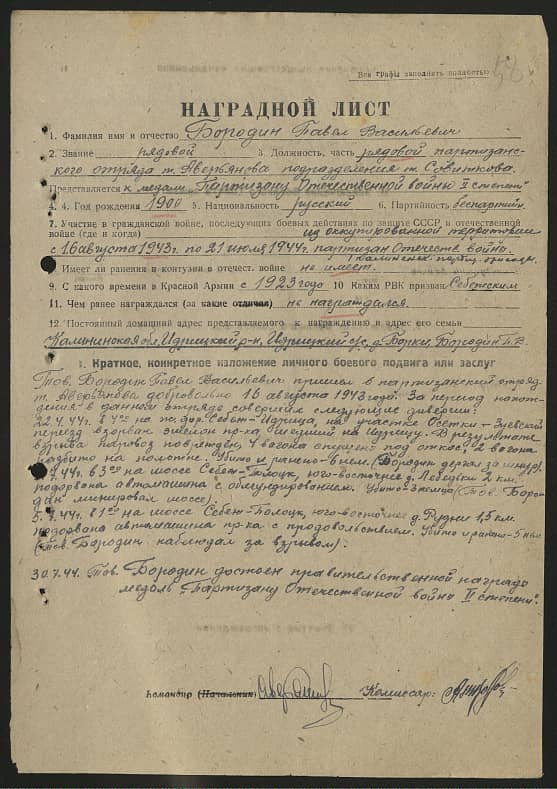 Все графы заполнять полностью
НАГРАДНОЙ ЛИСТ
1. Фамилия имя и отчество Бородин Павел Васильевич
2. Звание рядовой 3. Должность, часть рядовой партизанс-
кого отряда т. Авербянова подразделения т. Совиткова.
Представляется к медали „Партизану Отечественной войны II степени"
4. 4. Год рождения 1900 5. Национальность русский 6. Партийность беспартийн.
7. Участие в гражданской войне, последующих боевых действиях по защите СССР и отечественной
войне (где и когда) на оккупированной территории
с 16 августа 1943 г. по 21 июля 1944 г. партизан Отечеств. войны.
Калининск. партиз. бригады.
8. Имеет ли ранения и контузии в отечест. войне не имеет.
9. С какого времени в Красной Армии с 1923 года 10 Каким РВК призван Себежским
11. Чем ранее награждался (за какие отличия) не награждался.
12. Постоянный домашний адрес представляемого к награждению и адрес его семьи
Калининская обл. Идрицкий р-н, Идрицкий с/с, д. Борки, Бородин П.В.
I. Краткое, конкретное изложение личного боевого подвига или заслуг
Тов. Бородин Павел Васильевич пришел в партизанский отряд
т. Авербянова добровольно 16 августа 1943 года. За период нахож-
дения в данном отряде совершил следующие диверсии:
22.4.44г. в 4 00 на ж. дор. Себеж-Идрица, на участке Осетки-
перед взорван эшелон пр-ка шедший на Идрицу. В результате
взрыва паровоз поврежден, 4 вагона спущено под откос, 2 вагона
разбито на полотне. Убито и ранено 6 нем. (Бородин дергал за шнур).
7.44г. в 3 00 на шоссе Себеж-Полоцк, юго-восточнее д. Лебедевы 2 км.
подорвана автомашина с обмундированием. Убито 3 немца (Тов. Боро-
дин минировал шоссе).
5.7.44г. в 1 00 на шоссе Себеж-Полоцк, юго-восточнее д. Рудня 1,5 км.
подорвана автомашина пр-ка с продовольствием. Убито и ранено 5 нем.
(тов. Бородин наблюдал за взрывом).
30.7.44. Тов. Бородин достоен правительственной награды
медаль „Партизану Отечественной войны II степени".
Командир (Начальник) Комиссар: